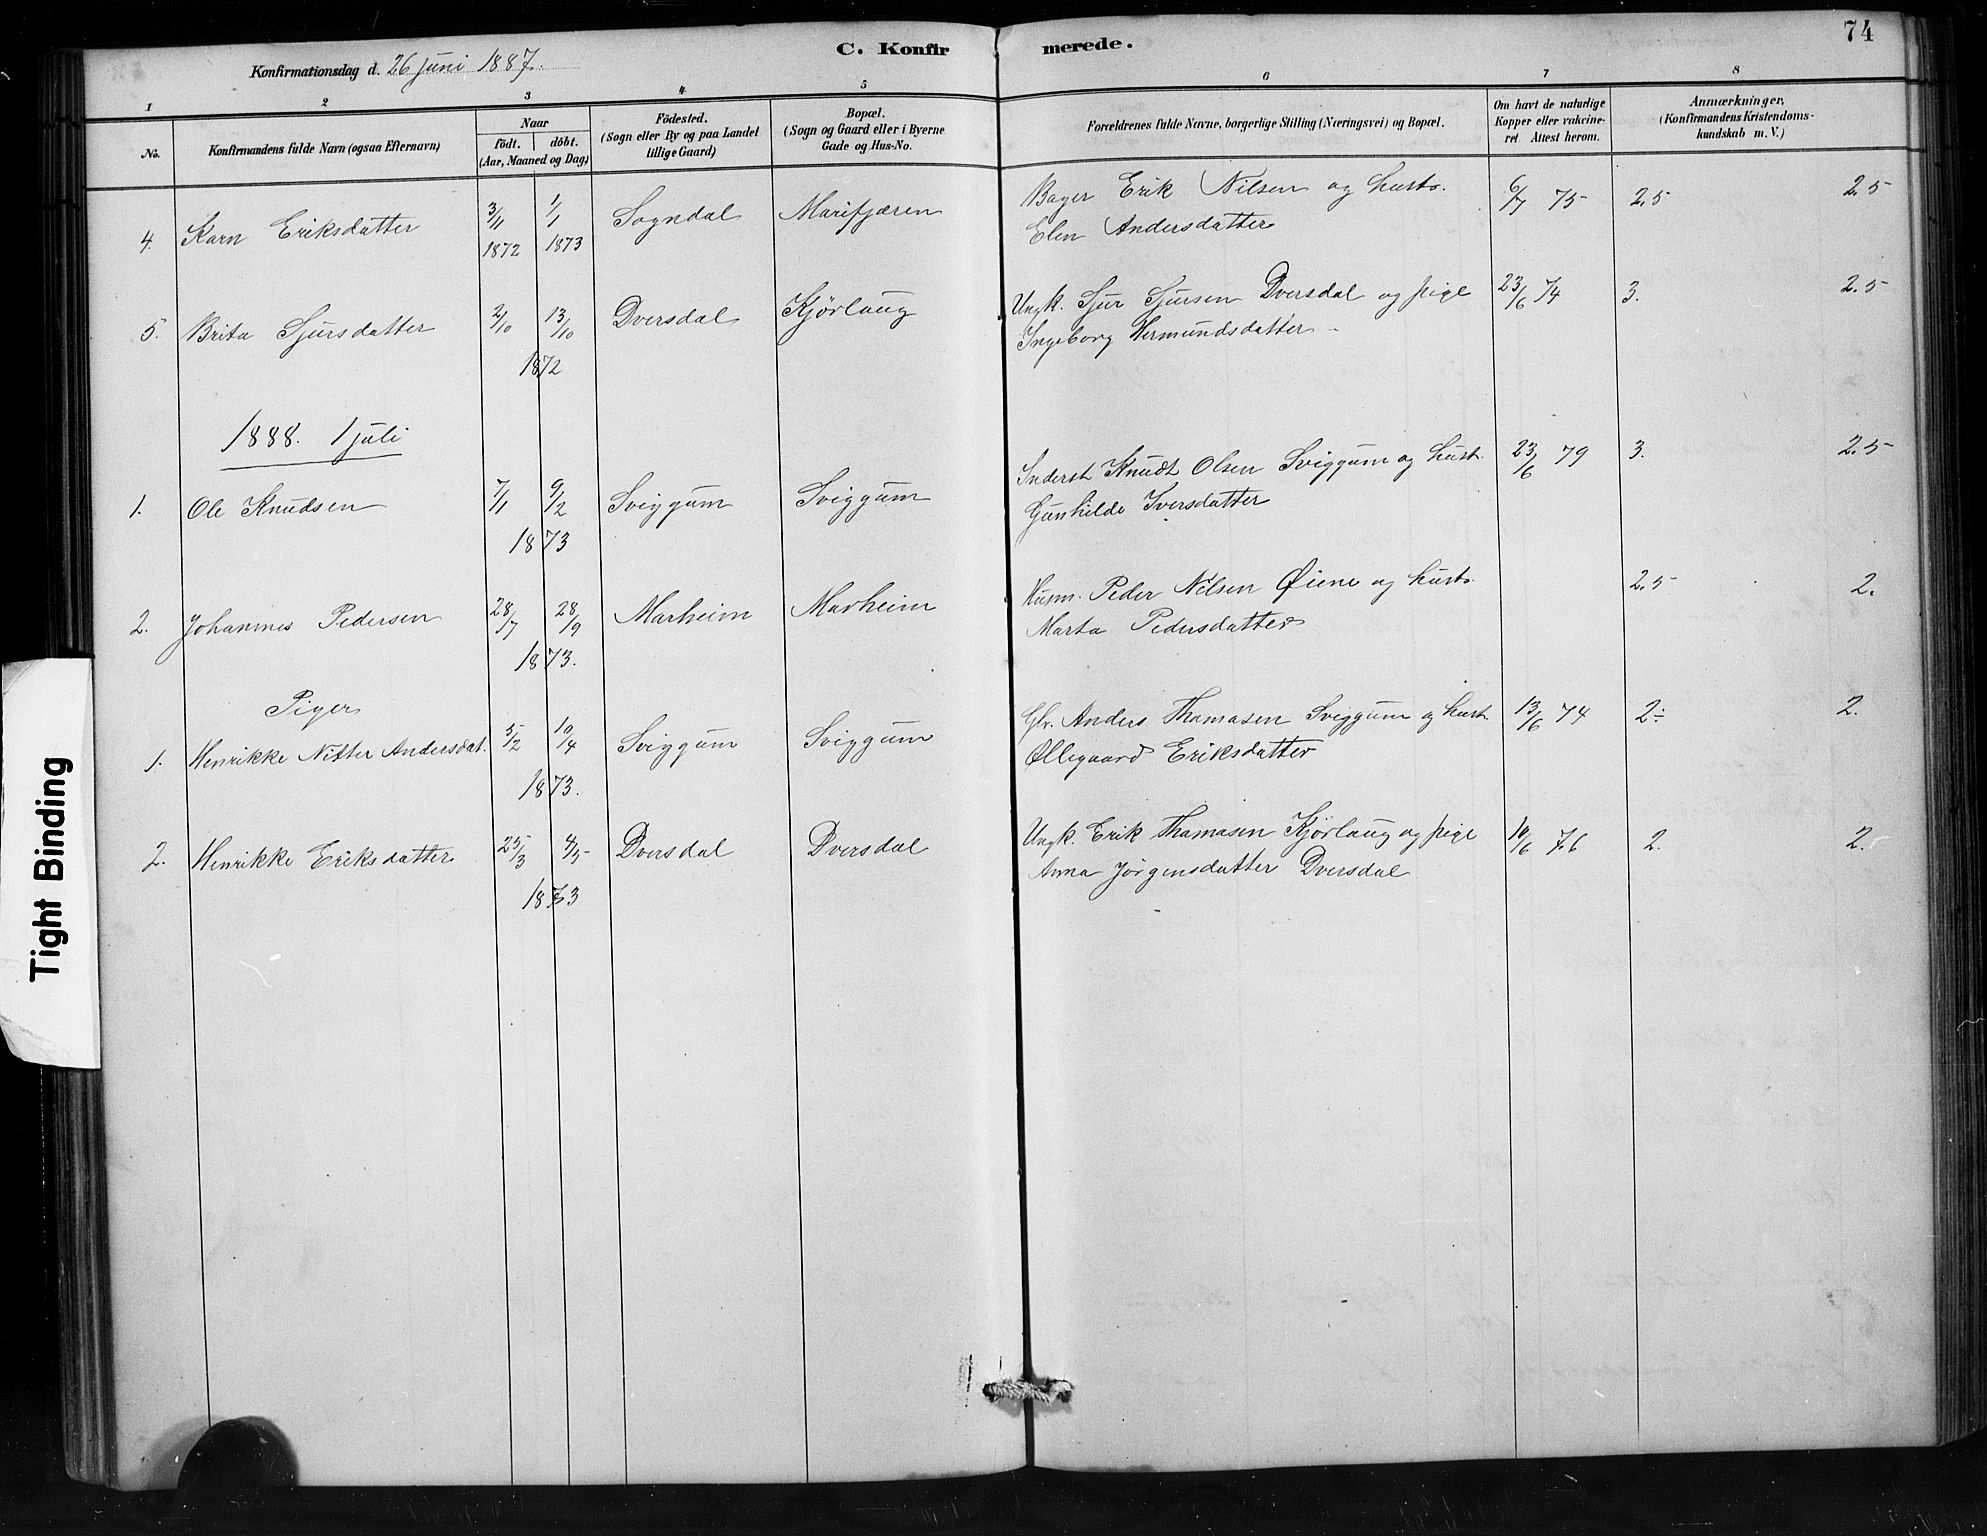 C. Konfirmerede.
74
Konfirmationsdag d. 26 juni 1887.
1 2 3 4 5 6 7 8
No.
Konfirmandens fulde Navn (ogsaa Efternavn)
Naar
födt. döbt.
(Aar, Maaned og Dag)
Födested.
(Sogn eller By og paa Landet
tillige Gaard)
Bopæl.
(Sogn og Gaard eller i Byerne
Gade og Hus-No.
Forældrenes fulde Navne, borgerlige Stilling (Næringsvei) og Bopæl.
Om havt de naturlige
Kopper eller vakcine-
ret Attest herom.
Anmærkninger.
(Konfirmandens Kristendoms-
kundskab m. V.)
4. Karn Eriksdatter 3/11 1872 1/1 1873 Sogndal Marifjæren Bager Erik Nilsen og hustr. 6/7 75 2.5 2.5
Elen Andersdatter
5. Brita Sjursdatter 2/10 13/10 Dversdal Kjörlaug Ungk. Sjur Sjursen Dversdal og pige 23/6 74 3. 2.5
1872 Ingeborg Hermundsdatter
1888. 1 juli
1. Ole Knudsen 7/1 9/2 Sviggum Sviggum Inderst Knudt Olsen Sviggum og hust. 23/6 79 3. 2.5
1873 Gunhilde Iversdatter
2. Johannes Pedersen 28/7 28/9 Marheim Marheim Husm. Peder Nilsen Øiene og hustr. 2.5 2.
1873. Marta Pedersdatter
Piger
1. Henrikke Nitter Andersdat. 5/2 10/14 Sviggum Sviggum Gbr. Anders Thamasen Sviggum og hust. 13/6 74 2÷ 2.
1873. Øllegaard Eriksdatter
2. Henrikke Eriksdatter 25/3 4/5 Dversdal Dversdal Ungk. Erik Thamasen Kjörlaug og pige 10/6 76 2. 2.
1873 Anna Jörgensdatter Dversdal
Tight Binding